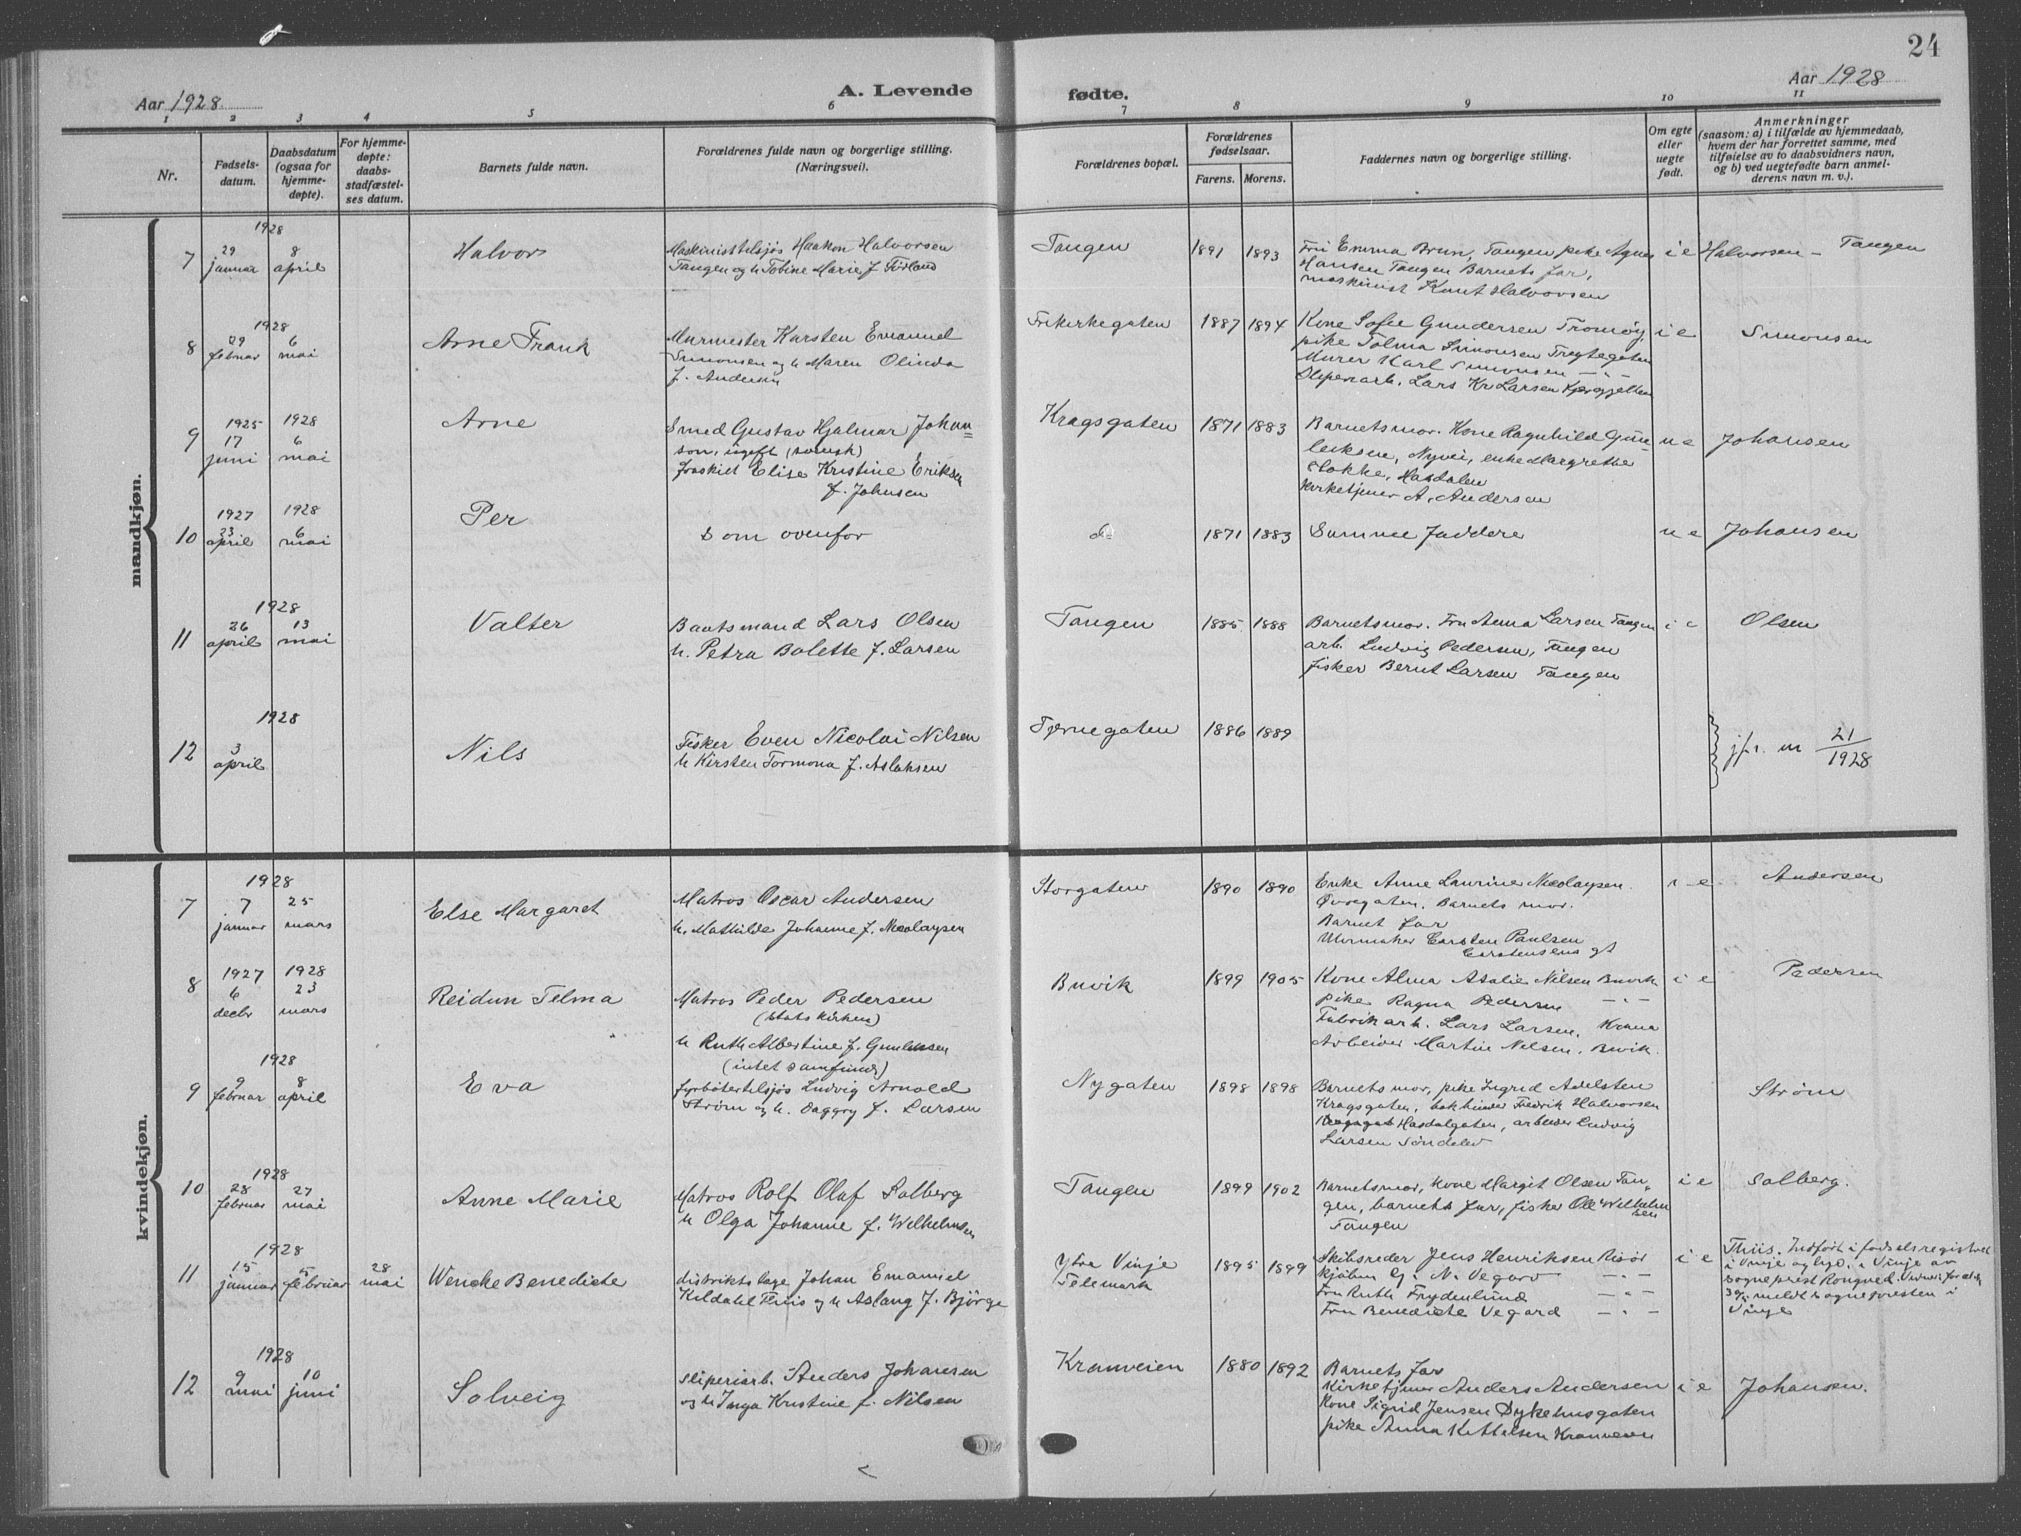 24
Aar 1928
A. Levende
fødte.
Aar 1928
1 2 3 4 5 6 7 8 9 10 11
Nr.
Fødsels-
datum.
Daabsdatum
(ogsaa for
hjemme-
døpte).
For hjemme-
døpte:
daabs-
stadfæstel-
ses datum.
Barnets fulde navn.
Forældrenes fulde navn og borgerlige stilling.
(Næringsvei).
Forældrenes bopæl.
Forældrenes
fødselsaar.
Farens. Morens.
Faddernes navn og borgerlige stilling.
Om egte
eller
uegte
født.
Anmerkninger
(saasom: a) i tilfælde av hjemmedaab,
hvem der har forrettet samme, med
tilføielse av to daabsvidners navn,
og b) ved uegtefødte barn anmel-
derens navn m. v.).
mandkjøn.
1928
7
29 januar
8 april
Halvor
Maskinisttilsjøs Haakon Halvorsen
Tangen og h Tobine Marie f.
Tangen
1891 1893
Fru Emma Brun, Tangen pike Agnes
Hansen Tangen Barnets far,
maskinist Knut Halvorsen
i e
Halvorsen - Tangen
1928
8
29 februar
6 mai
Arne Frank
Murmester Karsten Emanuel
Simonsen og h Maren Olinda
f. Andersen
Frikirkegaten
1887 1894
Kone Sofie Gundersen Tromøy,
pike Tolma Simonsen
Murer Karl Simonsen — " —
Sliperiarb. Lars Kr Larsen
i e
Simonsen
9
1925
17 juni
1928
6 mai
Arne
Smed Gustav Hjalmar Johan=
son, ugift (svensk)
fraskilt Elise Kristine Eriksen
f. Johnsen
Kragsgaten
1871 1883
Barnetsmor. Kone Ragnhild Gun
leiksen, Nyvei, enke Margrethe
Stokke, Hasdalen
Kirketjener A. Andersen
u e
Johansen
10
1927
23 april
1928
6 mai
Per
Som ovenfor
do
1871 1883
Samme faddere
u e
Johansen
1928
11
26 april
13 mai
Valter
Baatsmand Lars Olsen
h. Petra Bolette f. Larsen
Tangen
1885 1888
Barnetsmor. Fru Anna Larsen Tangen
arb. Ludvig Pedersen, Tangen
fisker Bernt Larsen Tangen
i e
Olsen
1928
12
3 april
Nils
Fisker Even Nicolai Nilsen
h Kirsten Tormona f. Aslaksen
Tjernegaten
1886 1889
jfr. nr 21/1928
kvindekjøn.
1928
7
7 januar
25 mars
Else Margaret
Matros Oscar Andersen
h. Mathilde Johanne f. Nicolaysen
Storgaten
1890 1890
Enke Anne Laurine Nicolaysen.
Øvregaten. Barnets mor.
Barnet far
Urmaker Carsten Paulsen
Carstensens gt
i e
Andersen
8
1927
6 decbr
1928
23 mars
Reidun Telma
Matros Peder Pedersen
(statskirken)
h Ruth Albertine f. Gunleiksen
(intet samfund)
Buvik
1899 1905
Kone Alma Atalie Nilsen Buvik
pike Ragna Pedersen — " —
Fabrikarb. Lars Larsen, Krana
Arbeider Martin Nilsen, Buvik.
i e
Pedersen
1928
9
9 februar
8 april
Eva
fyrbøtertilsjøs Ludvig Arnold
Strøm og h. Dagny f. Larsen
Nygaten
1898 1898
Barnets mor, pike Ingrid Adelsten
Kragsgaten, bokbinder Fredrik Halvorsen
Hasdalgaten, arbeider Ludvig
Larsen Søndeled
Strøm
1928
10
28 februar
27 mai
Anne Marie
Matros Rolf Olaf Solberg
h Olga Johanne f. Wilhelmsen
Tangen
1899 1902
Barnetsmor, Kone Margit Olsen Tan
gen, barnets far, fisker Ole Wilhelm
sen
Tangen
i e
Solberg.
1928
11
15 januar
5 februar
28 mai
Wencke Benedicte
distriktslæge Johan Emanuel
Kildahl Thiis og h Aslaug f. Bjørge
Ytre Vinje
Telemark
1895 1899
Skibsreder Jens Henriksen Risør
kjøbm G. N. Vegard — " —
Fru Ruth Frydenlund — " —
Fru Benedicte Vegard — " —
i e
Thiis. Indført i fødselsregistret
i Vinje av
sogneprest
meldt sognepresten i
Vinje
1928
12
9 mai
10 juni
Solveig
sliperiarb. Anders Johansen
og h Inga Kristine f. Nilsen
Kranveien
1880 1892
Barnets far
Kirketjener Anders Andersen
Kone Sigrid Jensen Dykehusgaten
pike Anna Kittelsen Kranveien
i e
Johansen.